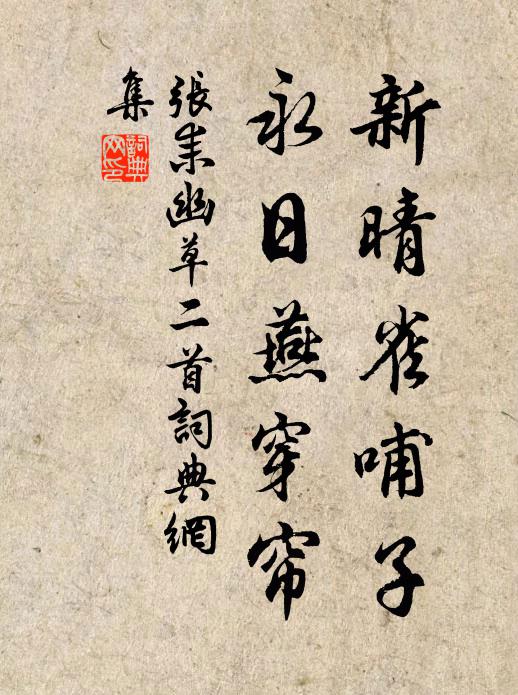 新晴雀哺子
永日燕穿帘
張耒幽草二首詞典網
集
詞典
網印